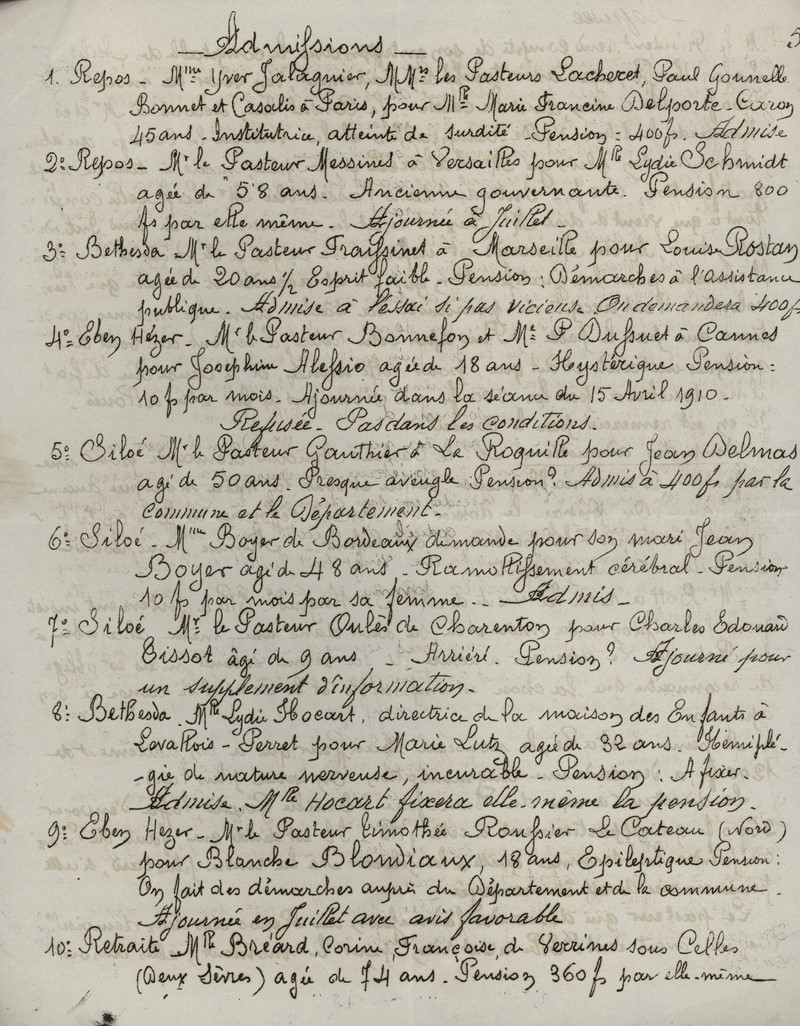 5
Admissions
1. Repos - Mme Yver Jalaguier, MMrs les Pasteurs Lacheret, Paul Gounelle
Bonnet et Casalis à Paris, pour Mlle Marie Francine Delporte-Caron
45 ans - Institutrice, atteinte de surdité - Pension = 400 f. Admise
2o Repos - Mr le Pasteur Messines à Versailles pour Mlle Lydie Schmidt
agée de 58 ans. Ancienne gouvernante. Pension 800
fs par elle même. Ajournée à Juillet -
3o Bethesda Mr le Pasteur Traissinet à Marseille pour Louise Rostan
agée de 20 ans ½ Esprit faible - Pension : Démarches à l'assistance
publique. Admise à l'essai si pas vicieuse On demandera 400 f
4o Eben Hézer. Mr le Pasteur Bonnefon et Me P Dussuet à Cannes
pour Josephine Alessio agée de 18 ans - Hystérique Pension :
10 f par mois. Ajournée dans la séance du 15 Avril 1910.
Refusée - Pas dans les conditions.
5o Siloé Mr le Pasteur Gauthier à La Roquille pour Jean Delmas
agé de 50 ans. Presque aveugle Pension ? Admis à 400 f par la
Commune et le Département.
6o Siloé - Mme Boyer de Bordeaux demande pour son mari Jean
Boyer âgé de 48 ans - Ramollissement cérébral - Pension
10 f par mois par sa femme.. - Admis -
7o Siloé Mr le Pasteur Oulès de Charenton pour Charles Edouard
Tissot âgé de 9 ans - Arriéré. Pension ? Ajourné pour
un supplément d'information.
8o Bethesda. Mlle Lydie Hocart, directrice de la maison des Enfants à
Levallois-Perret pour Marie Lutz agée de 32 ans. Hémiplé-
-gie de nature nerveuse, incurable - Pension : A fixer.
Admise. Mlle Hocart fixera elle-même la pension.
9o Eben Hezer - Mr le Pasteur Timothée Roussier Le Cateau (Nord)
pour Blanche Blondiaux, 18 ans, Epileptique Pension :
On fait des démarches auprès du Département et de la commune.
Ajournée en Juillet avec avis favorable
10o Retraite Mlle Bréard, Corine, Françoise, de Verrines sous Celles
(Deux Sèvres) agée de 74 ans - Pension 360 f par elle-même